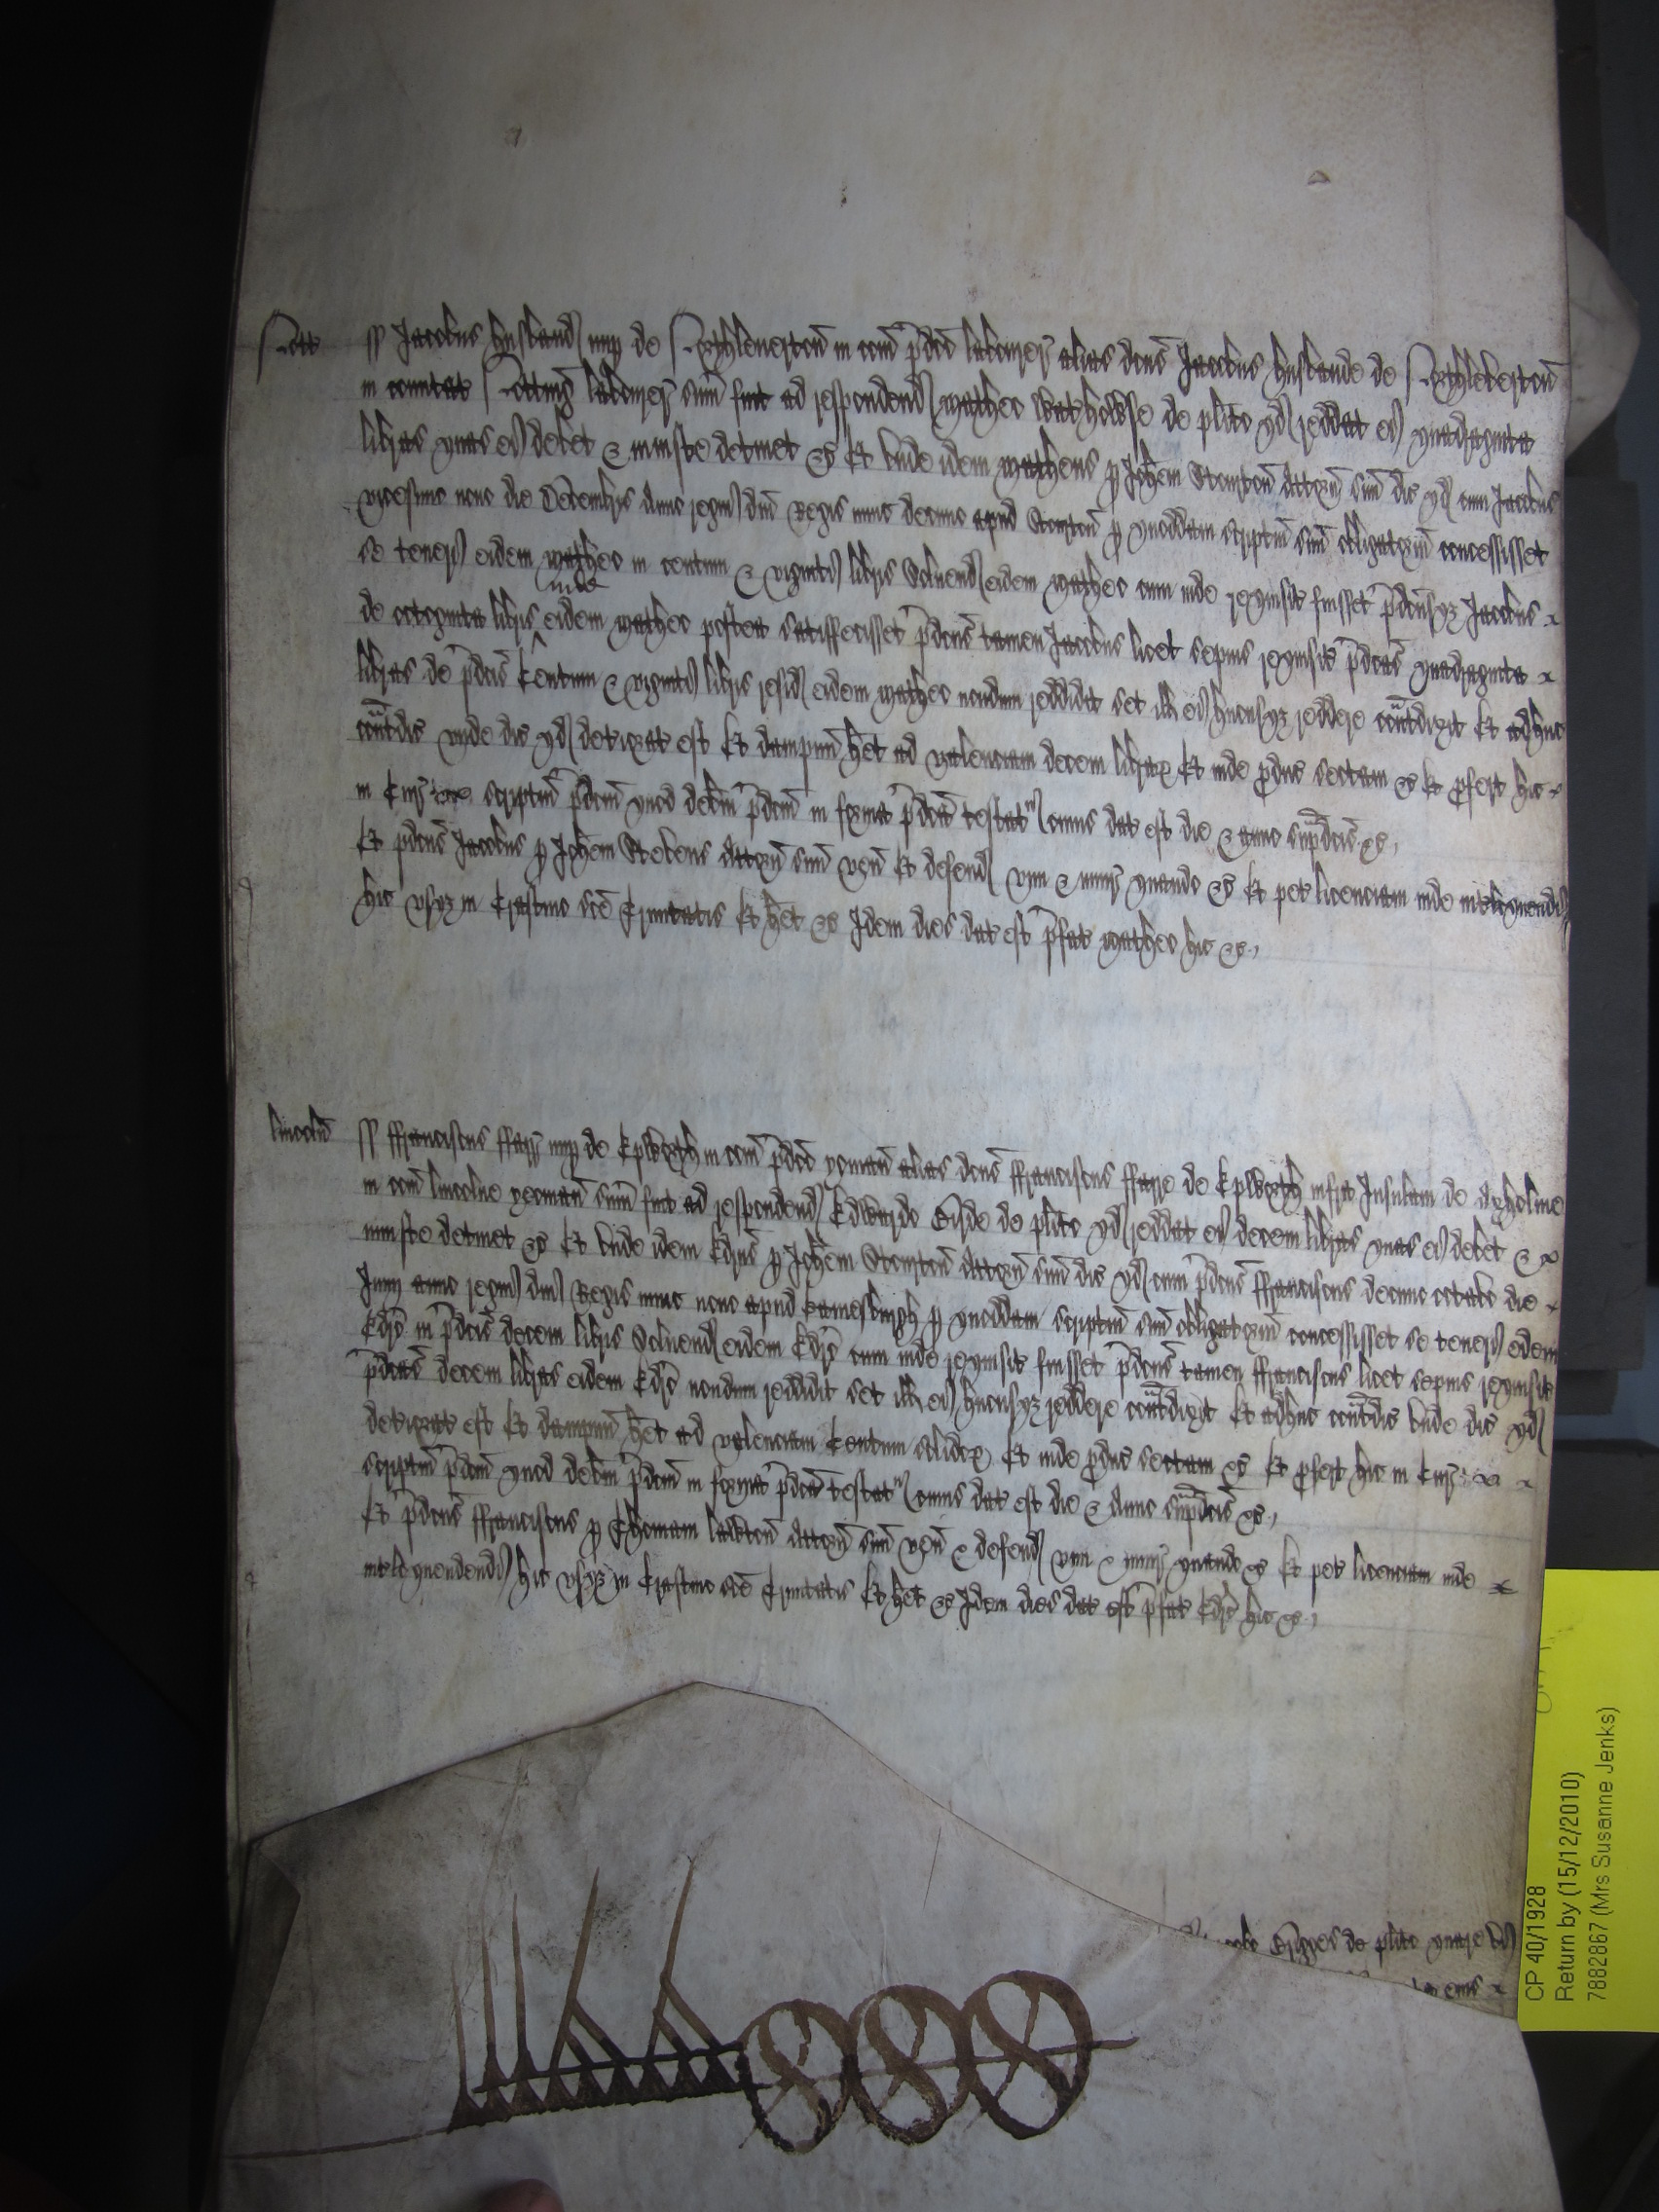 Nott ss Jacobus Husband nup de Northleverton in com pdco laborer alias dcus Jacobus Husbande de Northleverton
in comitat Notting laborer sum fuit ad respondend Matheo Wathowse de plito qd reddat ei quadraginta
libras quas ei debet & iniuste detinet &c Et unde idem Matheus p Johem Stourton attorn suu dic qd cum Jacobus
vicesimo nono die Decembris anno regni dni Regis nunc decimo apud Sturton p quoddam scriptu suu obligatoriu concessisset
se teneri eidem Matheo in centum & viginti libris Solvend eidem Matheo cum inde requisit fuisset pdcusqz Jacobus
de octoginta libris inde eidem Matheo postea satisfecisset pdcus tamen Jacobus licet sepius requisit pdcas quadraginta
libras de pdcis Centum & viginti libris resid eidem Matheo nondum reddidit set ill ei hucusqz reddere contdixit Et adhuc
contdic unde dic qd deteriorat est Et dampnu het ad valenciam decem librar Et inde pduc sectam &c Et pfert hic
in Cur scriptu pdcm quod debm pdcm in forma pdca testat cuius dat est die & anno supdcis &c
Et pdcus Jacobus p Johem Stevens attorn suu ven Et defend vim & iniur quando &c Et pet licenciam inde inteloquendi
hic usqz in Crastino sce Trinitatis Et het &c Idem dies dat est pfat Matheo hic &c
Lincoln ss ffranciscus ffarr nup de Epworth in com pdco yoman alias dcus ffranciscus ffarre de Epworth infra Insulam de Axholme
in com Lincolne yeoman sum fuit ad respondend Edwardo Birde de plito qd reddat ei decem libras quas ei debet &
iniuste detinet &c Et unde idem Edrus p Johem Stourton attorn suu dic qd cum pdcus ffranciscus decimo octavo die
Junij anno regni dni Regis nunc nono apud Gainesburgh p quoddam scriptu suu obligatoriu concessisset se teneri eidem
Edro in pdcis decem libris Solvend eidem Edro cum inde requisit fuisset pdcus tamen ffranciscus licet sepius requisit
pdcas decem libras eidem Edro nondum reddidit set ill ei hucusqz reddere contdixit Et adhuc contdic unde dic qd
deteriorat est Et dampnu het ad valenciam Centum solidor Et inde pduc sectam &c Et pfert hic in Cur
scriptu pdcm quod debm pdcm in forma pdca testat cuius dat est die & Anno supdcis &c
Et pdcus ffranciscus p Thomam Lawton attorn suu ven & defend vim & iniur quando &c Et pet licenciam inde
inteloquendi hic usqz in Crastino sce Trinitatis Et het &c Idem dies dat est pfat Edro hic &c
de plito quare
CP 40/1928
Return by (15/12/2010)
7882867 (Mrs Susanne Jenks)